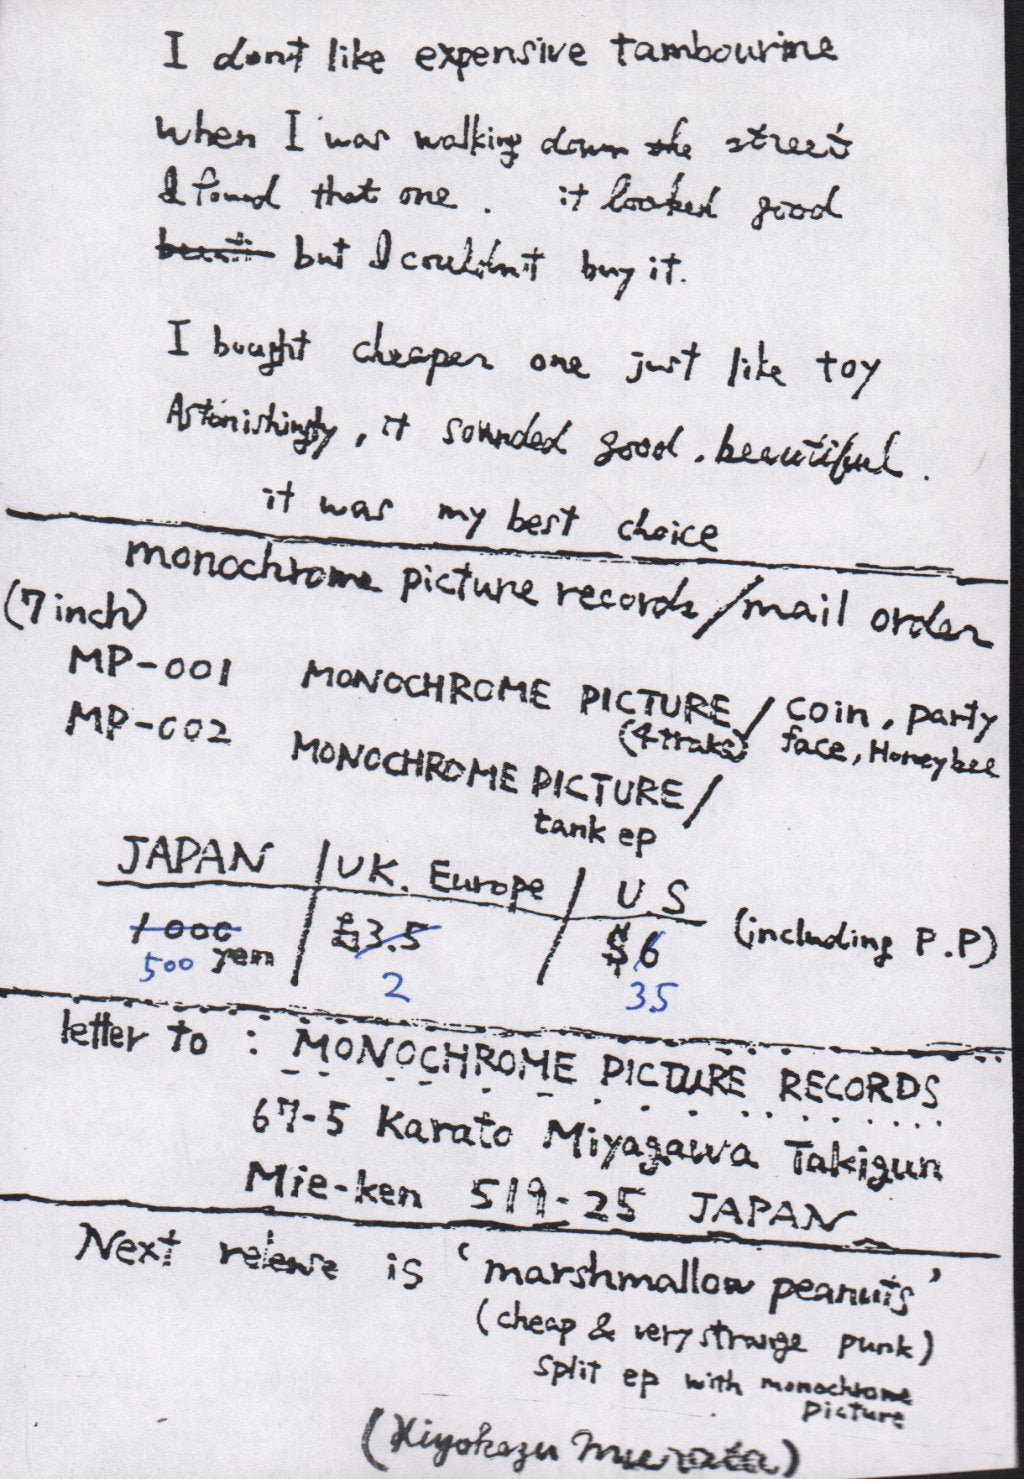 I dont like expensive tambourine
when I was walking down the street
I found that one. it looked good
but I couldn't buy it.
I bought cheaper one just like toy
Astonishingly, it sounded good. beautiful.
it was my best choice
monochrome picture records/mail order
(7 inch)
MP-001 MONOCHROME PICTURE / coin, party
(4 traks) face, Honeybee
MP-002 MONOCHROME PICTURE/
tank ep
JAPAN UK. Europe US
1000 yen £3.5 $6 (including P.P)
500 2 35
letter to : MONOCHROME PICTURE RECORDS
67-5 Karato Miyagawa Takigun
Mie-ken 519-25 JAPAN
Next release is 'marshmallow peanuts'
(cheap & very strange punk)
split ep with monochrome
picture
(Kiyokazu Murata)